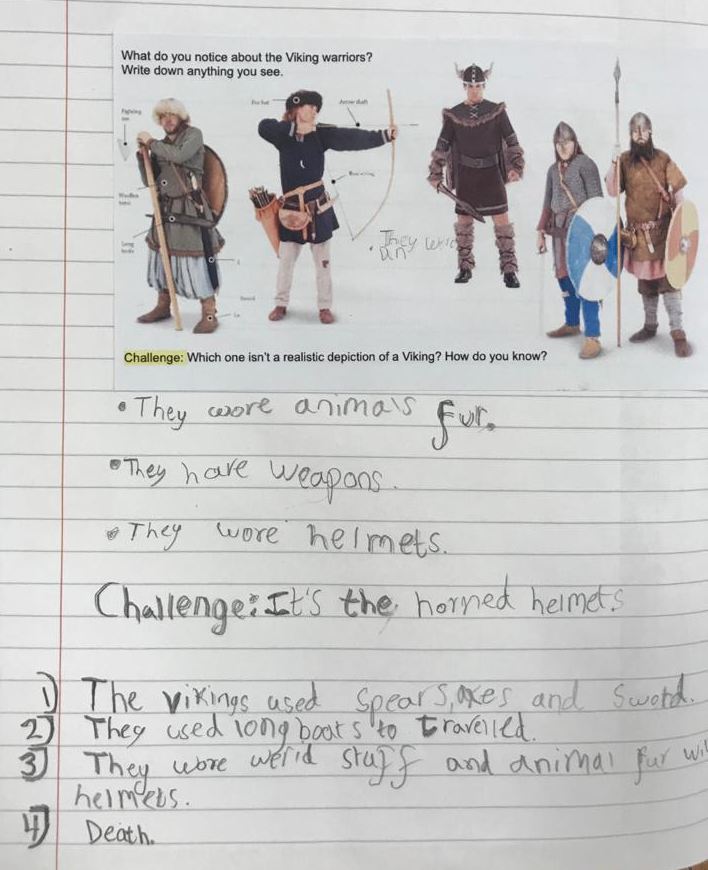 What do you notice about the Viking warriors?
Write down anything you see.
Fur hat
Arrow shaft
Fighting
axe
Long
knife
Sword
They
an
Challenge: Which one isn't a realistic depiction of a Viking? How do you know?
• They wore animals fur.
• They have weapons.
• They wore helmets.
Challenge: It's the horned helmets
1) The vikings used spears, axes and Sword.
2) They used longboats to travelled.
3) They wore werid stuff and animal fur
helmets.
4) Death.